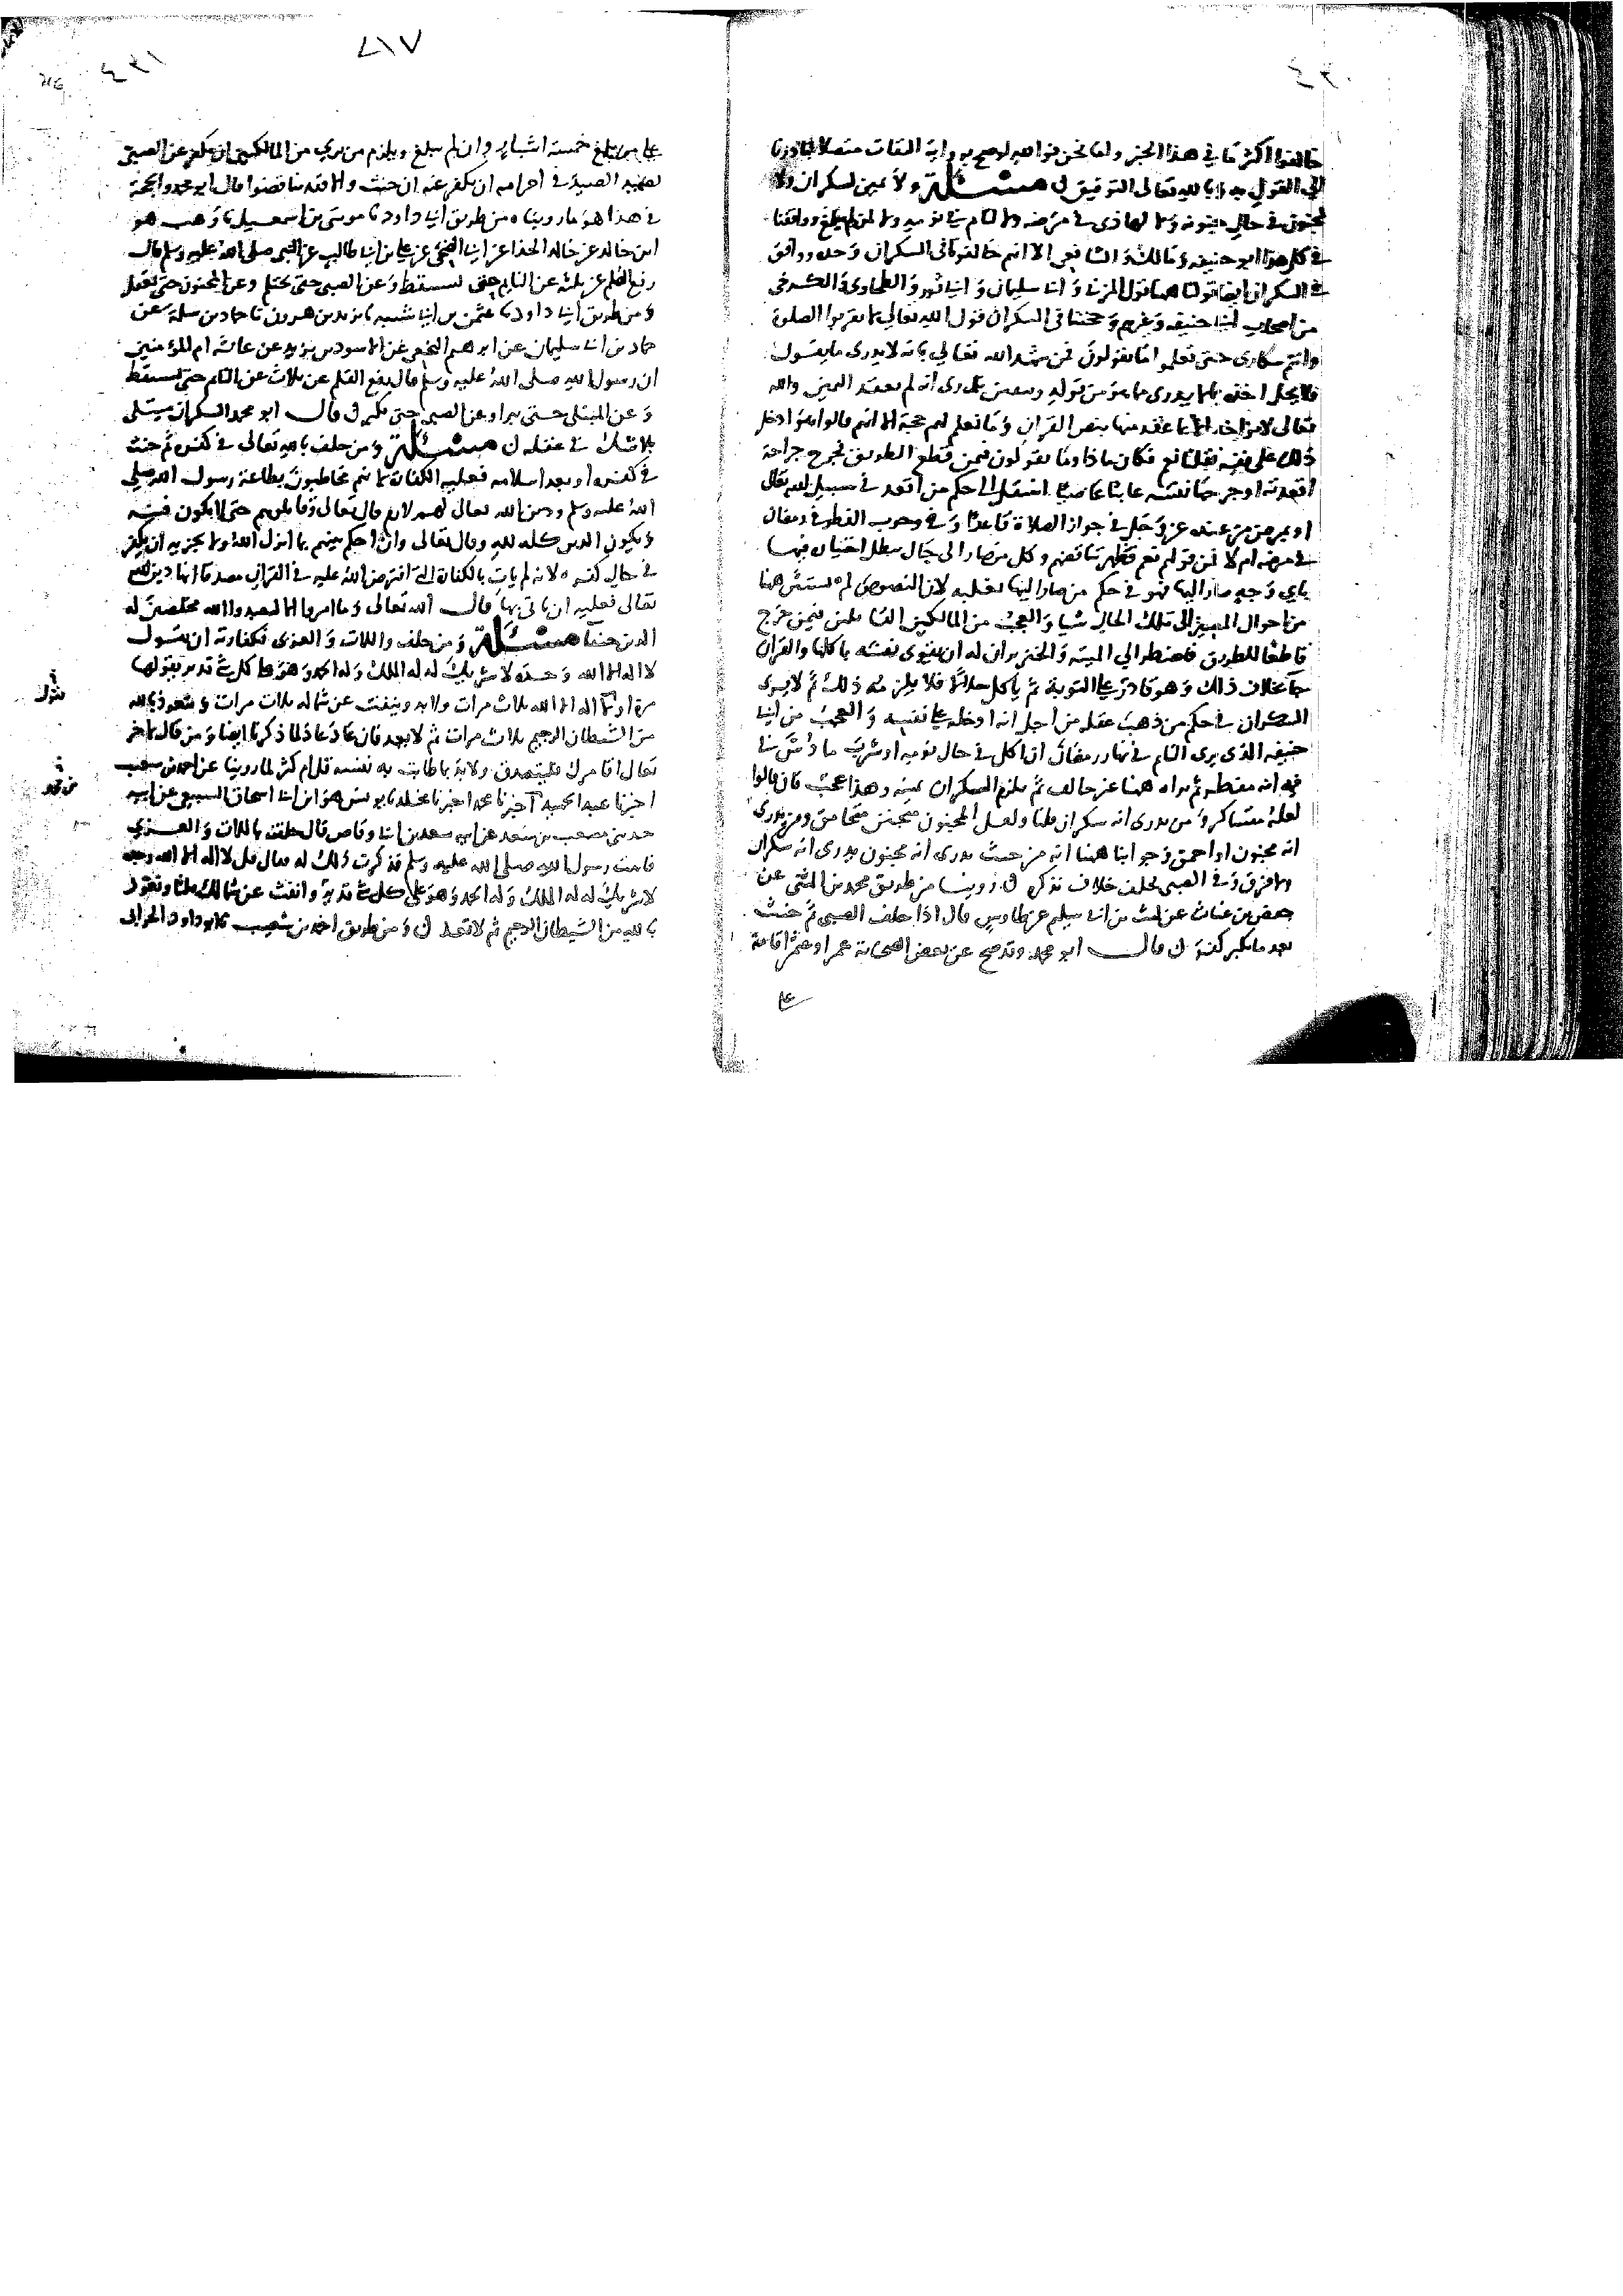 ٤٢٠
خالفوا اكثر ما في هذا الخبر واما نحن فوالله لو صح برواية الثقات متصلا لبادرنا
الى القول به وبالله تعالى التوفيق مسئلة ولا يمين لسكران ولا
لمجنون في حال جنونه ولا لهاذي في مرضه ولا لنائم في نومه ولا لمن لم يبلغ ووافقنا
في كل هذا ابو حنيفة ومالك والشافعي الا انهم خالفونا في السكران وحده ووافق
في السكران ايضا قولنا هاهنا قول المزني وابي سليمان وابي ثور والطحاوي والكرخي
من اصحاب ابي حنيفة وغيرهم وحجتنا في السكران قول الله تعالى لا تقربوا الصلوة
وانتم سكارى حتى تعلموا ما تقولون فمن شهد الله تعالى بانه لا يدري ما يقول
فلا يحل اخذه بما لا يدري ما هو من قوله
تعالى لا يؤاخذ الا بما عقد منها بنص القران وما نعلم لهم حجة الا انهم قالوا هو ادخل
ذلك على نفسه فقلنا نعم فكان ماذا وما تقولون فيمن قطع الطريق فجرح جراحة
اقعدته او جرحها نفسه عابثا عاصيا انتقل الى حكم من اقعد في سبيل الله تعالى
او بمرض من عنده عز وجل في جواز الصلاة قاعدا وفي وجوب الفطر في رمضان
في مرضه ام لا فمن قولهم نعم فظهر تناقضهم وكل من صار الى حال يبطل اختياره فيها
باي وجه صار اليها فهو في حكم من صار اليها بغلبه لان النصوص لم تستثن هاهنا
من احوال المصير الى تلك الحال شيا والعجب من المالكيين القائلين فيمن خرج
قاطعا للطريق فاضطر الى الميتة والخنزير ان له ان يقوي نفسه باكلها والقران
جا بخلاف ذلك وهو قادر على التوبة ثم ياكل حلالا فلا يلزمه ذلك ثم لا يرى
السكران في حكم من ذهب عقله من اجل انه ادخله على نفسه والعجب من ابي
حنيفة الذي يرى النائم في نهار رمضان ان اكل في حال نومه او شرب ما دس
فيه انه مفطر ثم يراه هاهنا غير حالف ثم يلزم السكران يمينه وهذا عجب فان قالوا
لعله متساكر ومن يدري انه سكران قلنا ولعل المجنون متجنن متحامق ومن يدري
انه مجنون او احمق وجوابنا هاهنا انه من حيث يدري انه مجنون يدري انه سكران
ولا فرق وفي الصبي يحلف خلاف نذكره روينا من طريق محمد بن المثنى عن
حفص بن غياث عن ليث بن ابي سليم عن طاوس قال اذا حلف الصبي ثم حنث
بعد ما يكبر كفر قال ابو محمد وقد صح عن بعض الصحابة عمر او عثمان اقامة
على
٤٢١
٢١٧
على من بلغ خمسة اشبار وان لم يبلغ ويلزم من يرى من المالكيين ان يكفر عن الصبي
لصيد الصيد في احرامه ان يكفر عنه ان حنث والا فقد تناقضوا قال ابو محمد والحجة
في هذا هو ما رويناه من طريق ابي داود نا موسى بن اسمعيل نا وهب هو
ابن خالد عن خالد الحذا عن ابي الضحى عن علي بن ابي طالب عن النبي صلى الله عليه وسلم قال
رفع القلم عن ثلثة عن النايم حتى يستيقظ وعن الصبي حتى يحتلم وعن المجنون حتى يعقل
ومن طريق ابي داود نا عثمن بن ابي شيبة نا يزيد بن هرون نا حماد بن سلمة عن
حماد بن ابي سليمان عن ابرهيم النخعي عن الاسود بن يزيد عن عائشة ام المؤمنين
ان رسول الله صلى الله عليه وسلم قال رفع القلم عن ثلاث عن النائم حتى يستيقظ
وعن المبتلى حتى يبرا وعن الصبي حتى يكبر قال ابو محمد السكران مبتلى
بلا شك في عقله مسئلة ومن حلف بالله تعالى في كفره ثم حنث
في كفره او بعد اسلامه فعليه الكفارة لانهم مخاطبون بطاعة رسول الله صلى
الله عليه وسلم ودين الله تعالى لهم لازم قال تعالى وقاتلوهم حتى لا يكون فتنة
ويكون الدين كله لله وقال تعالى وان احكم بينهم بما انزل الله ولا يجزيه ان يكفر
في حال كفره لانه لم يات بالكفارة التي افترض الله عليه في القران مصدقا انها دين الله
تعالى فعليه ان ياتي بها قال الله تعالى وما امروا الا ليعبدوا الله مخلصين له
الدين حنفا مسئلة ومن حلف واللات والعزى فكفارته ان يقول
لا اله الا الله وحده لا شريك له له الملك وله الحمد وهو على كل شي قدير يقولها
مرة او لا اله الا الله ثلاث مرات ولابد وينفث عن شماله ثلاث مرات ويتعوذ بالله
من الشيطان الرجيم ثلاث مرات ثم لا يعد فان عاد عاد لما ذكرنا ايضا ومن قال لاخر
تعال اقامرك فليتصدق ولابد بما طابت به نفسه قل ام كثر لما روينا عن احمد بن شعيب
اخبرنا عبد الحميد بن محمد اخبرنا مخلد نا يونس هو ابن ابي اسحاق السبيعي عن ابيه
حدثني مصعب بن سعد عن ابيه سعد بن ابي وقاص قال حلفت باللات والعزى
فاتيت رسول الله صلى الله عليه وسلم فذكرت ذلك له فقال قل لا اله الا الله وحده
لا شريك له له الملك وله الحمد وهو على كل شي قدير وانفث عن شمالك ثلثا وتعوذ
بالله من الشيطان الرجيم ثم لا تعد ومن طريق احمد بن شعيب نا ابو داود الحراني